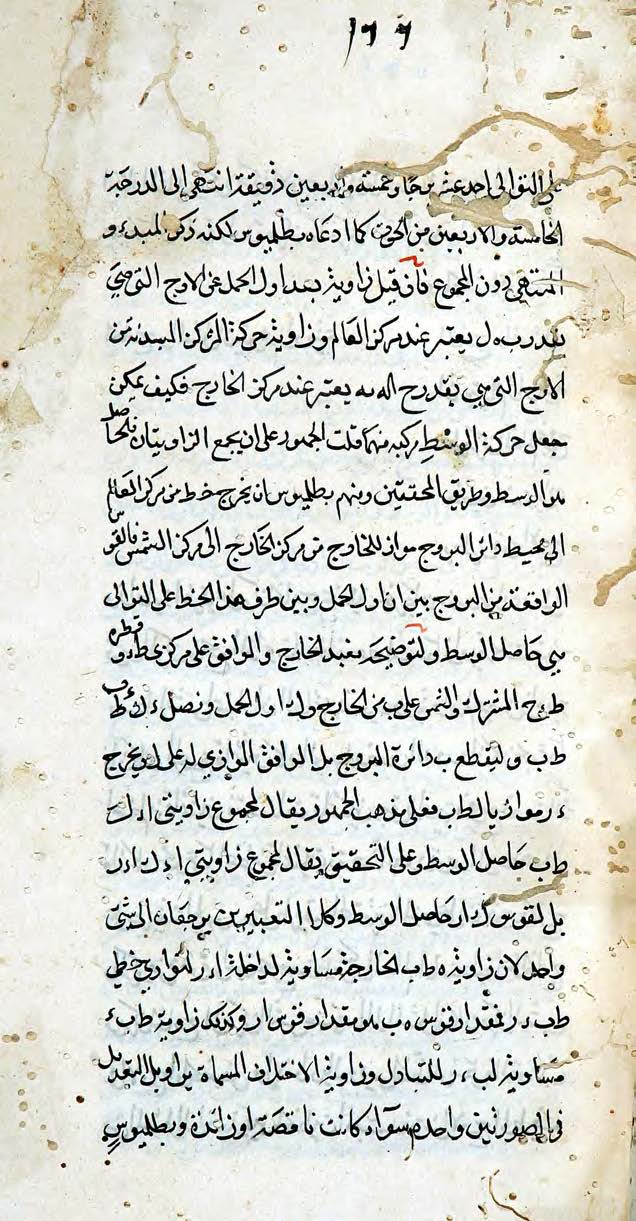 ١٦٦
على التوالى احد عشر برجا وخمسة واربعين دقيقة انتهى الى الدرجة
الخامسة والاربعين من الحوت كما ادعاه بطلميوس لكنه ذكر المبدء و
المنتهى دون المجموع فان قيل زاوية بعد اول الحمل عن الاوج التى هى
بقدر يعتبر عند مركز العالم وزاوية حركة المركز المبتدئة من
الاوج التى هى بقدر يعتبر عند مركز الخارج فكيف يمكن
جعل حركة الوسط مركبه منهما قلت الجمهور على ان يجمع الزاويتان فالحاصل
هو الوسط وطريق المحققين ومنهم بطلميوس ان يخرج خط من مركز العالم
الى محيط دائر البروج مواز للخارج من مركز الخارج الى مركز الشمس فالقوس
الواقعة من البروج بين اول الحمل وبين طرف هذا الخط على التوالى
هى حاصل الوسط ولتوضيحه نعيد الخارج والوافق على مركزى ط ء و قطره
المشترك والشمس على ب من الخارج و ك اول الحمل ونصل
ط ب وليقطع ب دائرة البروج بل الوافق الموازي له على ل ويخرج
ء ر موازيا لـ ط ب فعلى مذهب الجمهور يقال لمجموع زاويتى
ط ب حاصل الوسط وعلى التحقيق يقال لمجموع زاويتي
بل لقوس ك ا ر حاصل الوسط وكلا التعبيرين يرجعان الى شئ
واحد لان زاوية ه ط ب الخارجة مساوية لداخلة ا ء ر لتوازى خطى
ط ب ء ر فمقدار قوس ه ب هو مقدار قوس ا ر وكذلك زاوية ط ب ء
مساوية لـ ب ء ر للتبادل وزاوية الاختلاف المسماة بزاوية التعديل
فى الصورتين واحدة سوآء كانت ناقصة او زائدة وبطلميوس